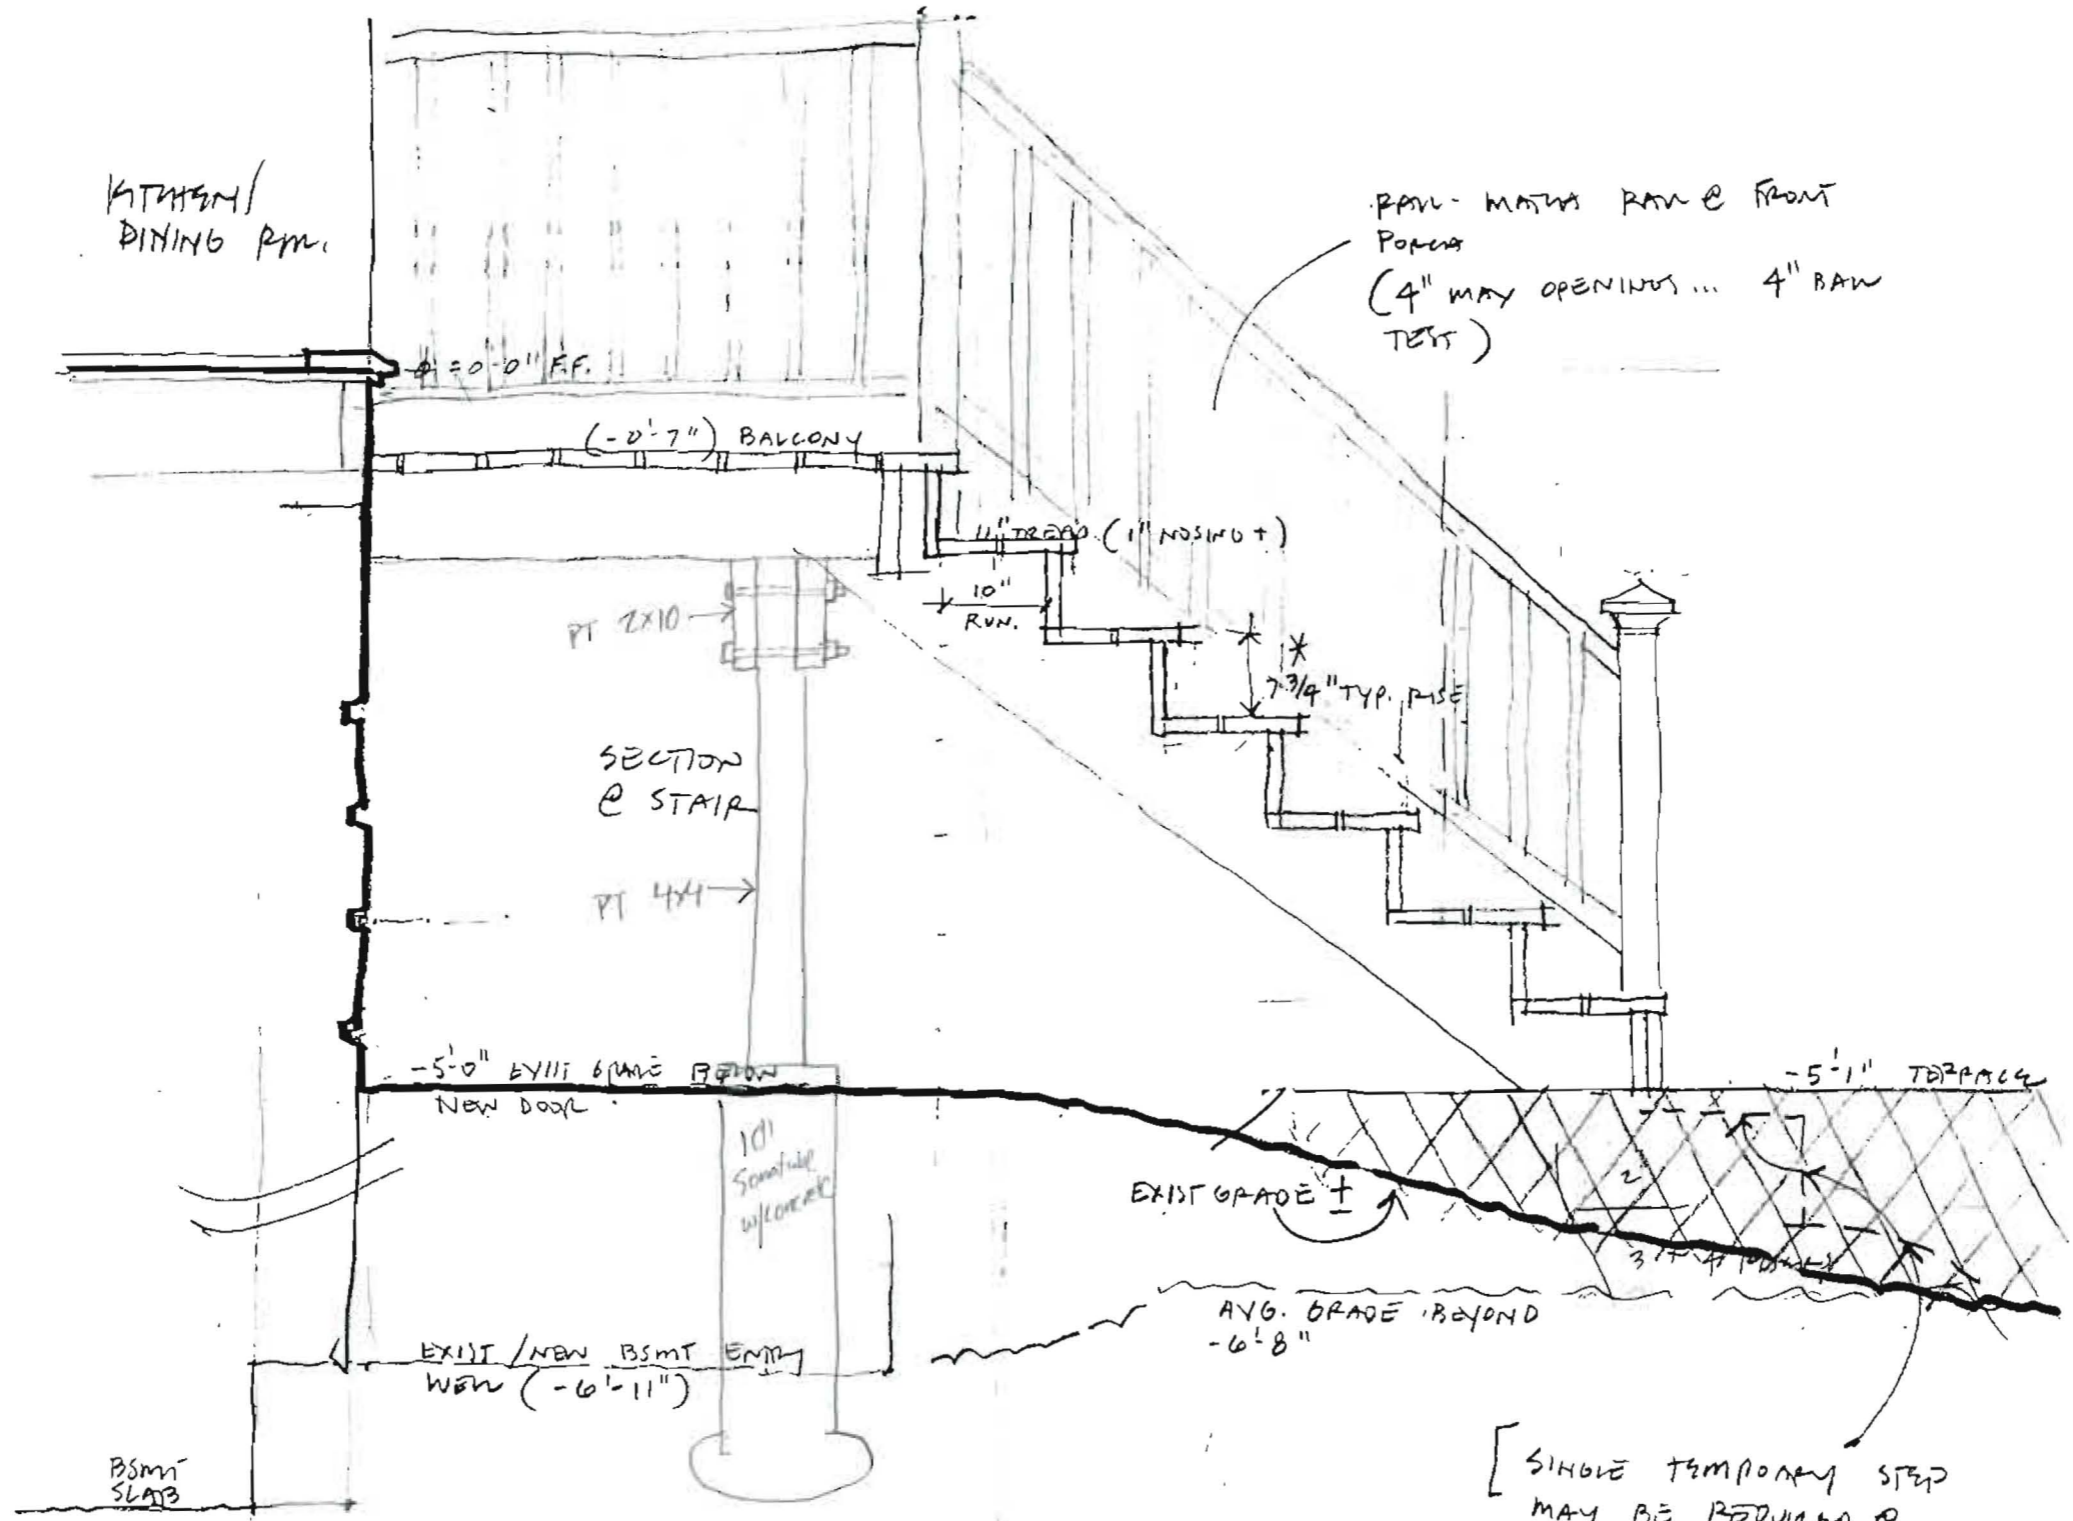 KITCHEN/
DINING RM.
RAIL - MATCH RAIL @ FRONT
PORCH
(4" MAX OPENINGS... 4" BALL
TEST)
= 0'-0" F.F.
(-0'-7") BALCONY
11" TREAD (1" NOSING +)
10"
RUN.
PT 2x10
*
7 3/4" TYP. RISE
SECTION
@ STAIR
PT 4x4
-5'-0" EXIST GRADE BELOW
NEW DOOR
-5'-1" TERRACE
10"
Sonotube
w/concrete
2
EXIST GRADE ±
3
AVG. GRADE BEYOND
-6'-8"
EXIST/NEW BSMT ENTRY
WELL (-6'-11")
BSMT
SLAB
[SINGLE TEMPORARY STEP
MAY BE REQUIRED @